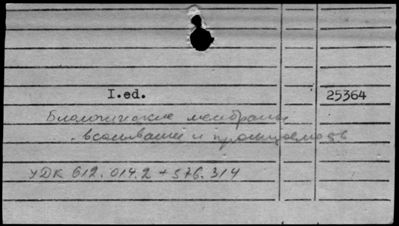 I.ed. 25364
Биологические мембраны
- всасывание и проницаемость
УДК 612.014.2 + 576.314